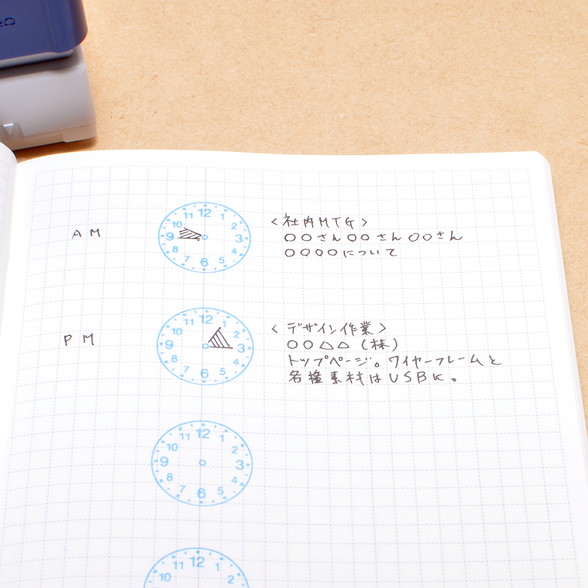 AM
12
11 1
10 2
9 3
8 4
7 6 5
<社内MTG>
○○さん○○さん○○さん
○○○○について
PM
12
11 1
10 2
9 3
8 4
7 6 5
<デザイン作業>
○○△△(株)
トップページ。ワイヤーフレームと
各種素材はUSBに。
12
11 1
10 2
9 3
8 4
7 6 5
12
11 1
10 2